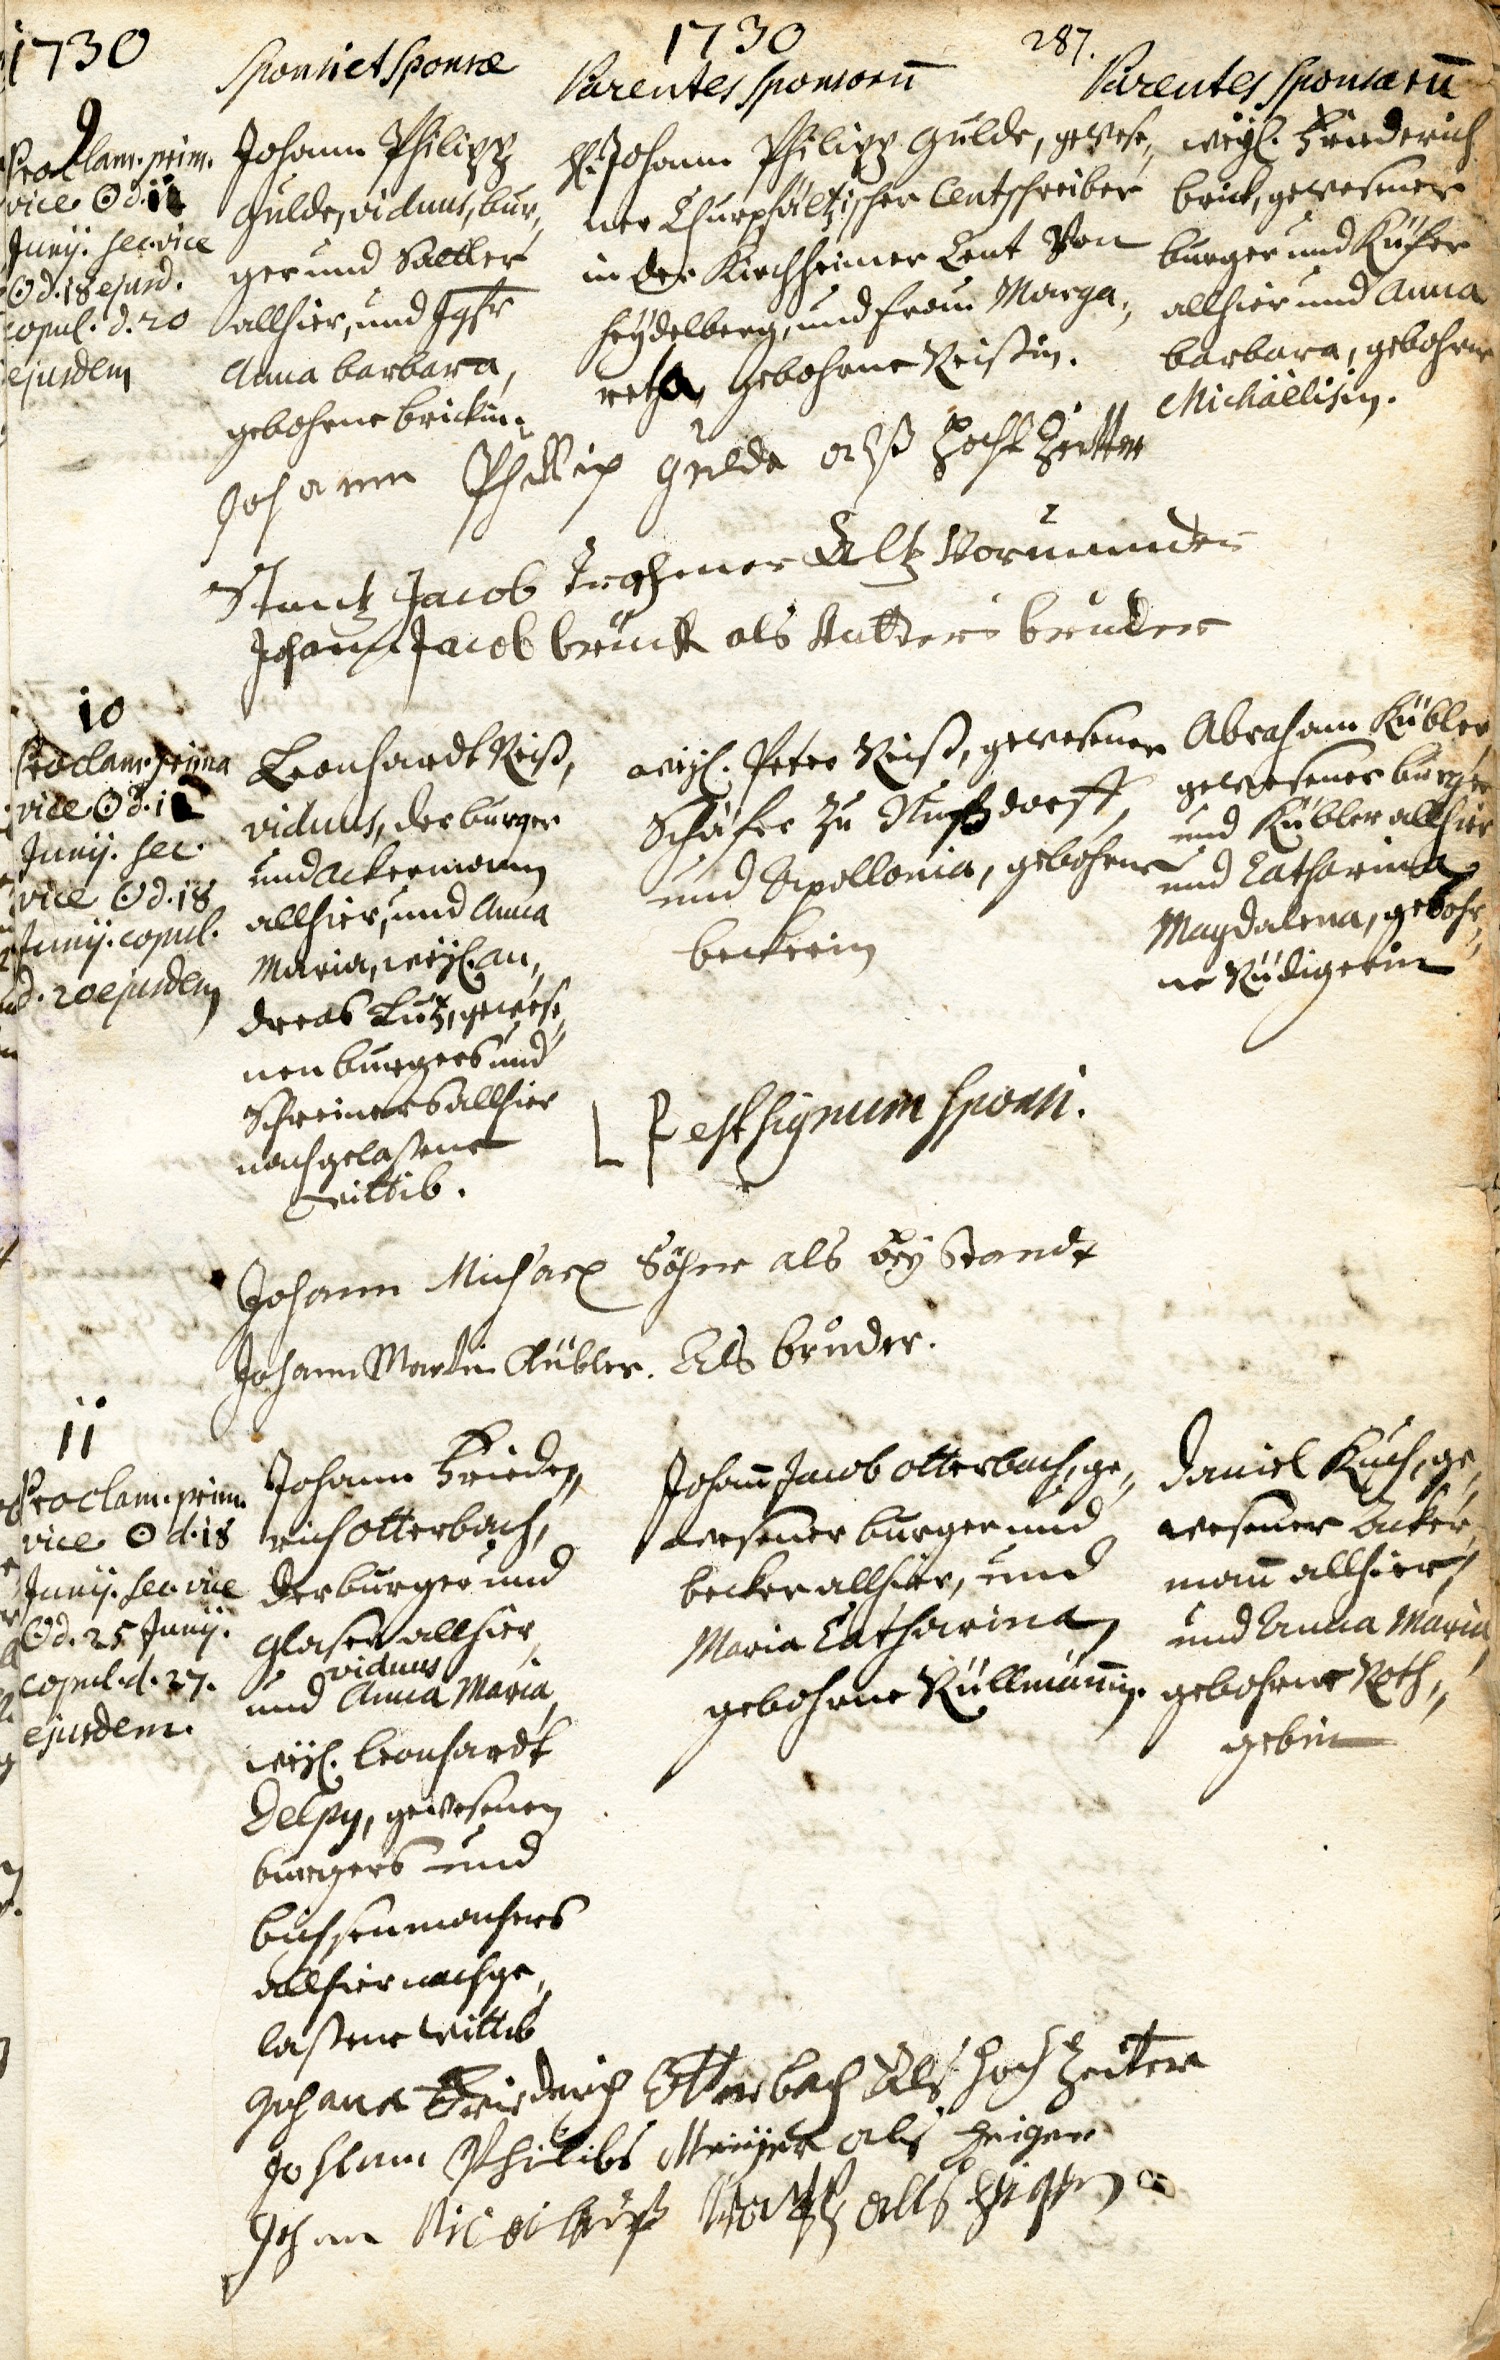 1730
1730
287.
Sponsi et Sponsæ
Parentes Sponsorū
Parentes Sponsarū
9
Proclam. prim.
vice ☉ d. 11
Junij. sec. vice
☉ d. 18 ejusd.
copul. d. 20
ejusdem
Johann Philipp
Gulde, viduus, bur„
ger und Sattler
allhier, und Jgfr
Anna barbara,
gebohrne brickin.
H. Johann Philipp Gulde, gewese„
ner Churpfältzischer Centschreiber
in der Kirchheimer Cent Von
Heydelberg, und frau Marga„
retha, gebohrne Reissin.
weyl. Friederich
brick, gewesener
burger und Küfer
allhier und Anna
barbara, gebohrne
Michaëlisin.
Johann Philip Gulde alß Hochzeitter
Jacob Vormunder
Johann Jacob brück als Vatters bruder
10
Proclam. prima
vice ☉ d. 11
Junij. sec.
vice ☉ d. 18
Junij. copul.
d. 20 ejusdem
Leonhardt Reiß,
viduus, der burger
und ackermann
allhier, und Anna
Maria, weyl. an„
dreas Lutz, gewese„
nen burgers und
Schreiners allhier
nachgelaßene
wittib.
weyl. Peter Reiß, gewesener
Schäfer zu Nußdorff,
und Apollonia, gebohrne
beckerin
Abraham Kübler,
gewesener burger
und Kübler allhier
und Catharina
Magdalena, gebohr„
ne Rüdigerin
L R est signum sponsi.
Johann Michael Söhner als beystandt
Johann Martin Kübler. Als bruder.
11
Proclam. prim.
vice ☉ d. 18
Junij. sec. vice
☉ d. 25 Junij.
copul. d. 27.
ejusdem.
Johann Friede„
rich Otterbach,
der burger und
Glaser allhier,
viduus
und Anna Maria,
weyl. Leonhardt
Delpy, gewesenen
burgers und
büchsenmachers
allhier nachge„
laßene wittib
Johann Jacob Otterbach, ge„
wesener burger und
becker allhier, und
Maria Catharina,
gebohrne Rüllmännin.
Daniel Kuch, ge„
wesener Acker„
mann allhier,
und Anna Maria,
gebohrne Roth„
gebin
Johann Friedrich Otterbach Als Hochzeiter
Johann Philibs Meijer als Zeigen
Johan als Zeigen